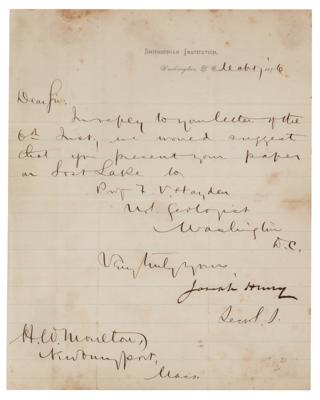 SMITHSONIAN INSTITUTION,
Washington, D. C.
Dear Sir:
In reply to your letter of the
6th Inst., we would suggest
that you present your paper
on Lost Lake to
Prof F. V. Hayden
U.S. Geologist
Washington
D.C.
Very truly yours,
Joseph Henry
Sec. S. I.
H. W. Moulton,
Newburyport,
Mass